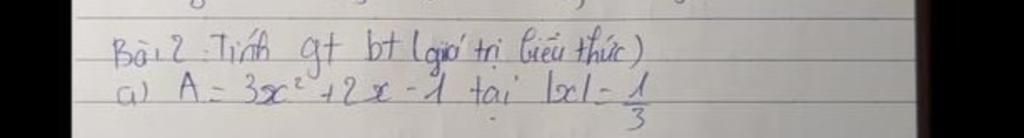 Bài 2: Tính gt bt (giá trị biểu thức)
a) A = 3x² + 2x - 1 tại |x| = 1/3